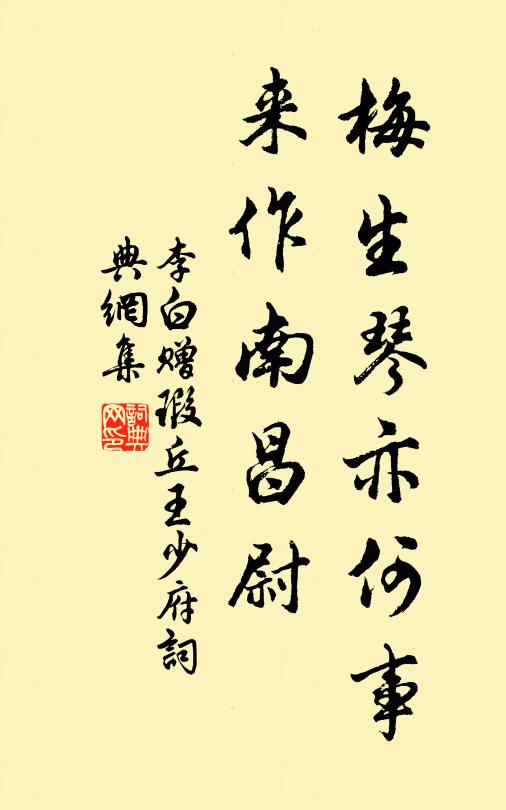 梅生琴亦何事
来作南昌尉
李白赠瑕丘王少府詞
典網集
詞典
网印